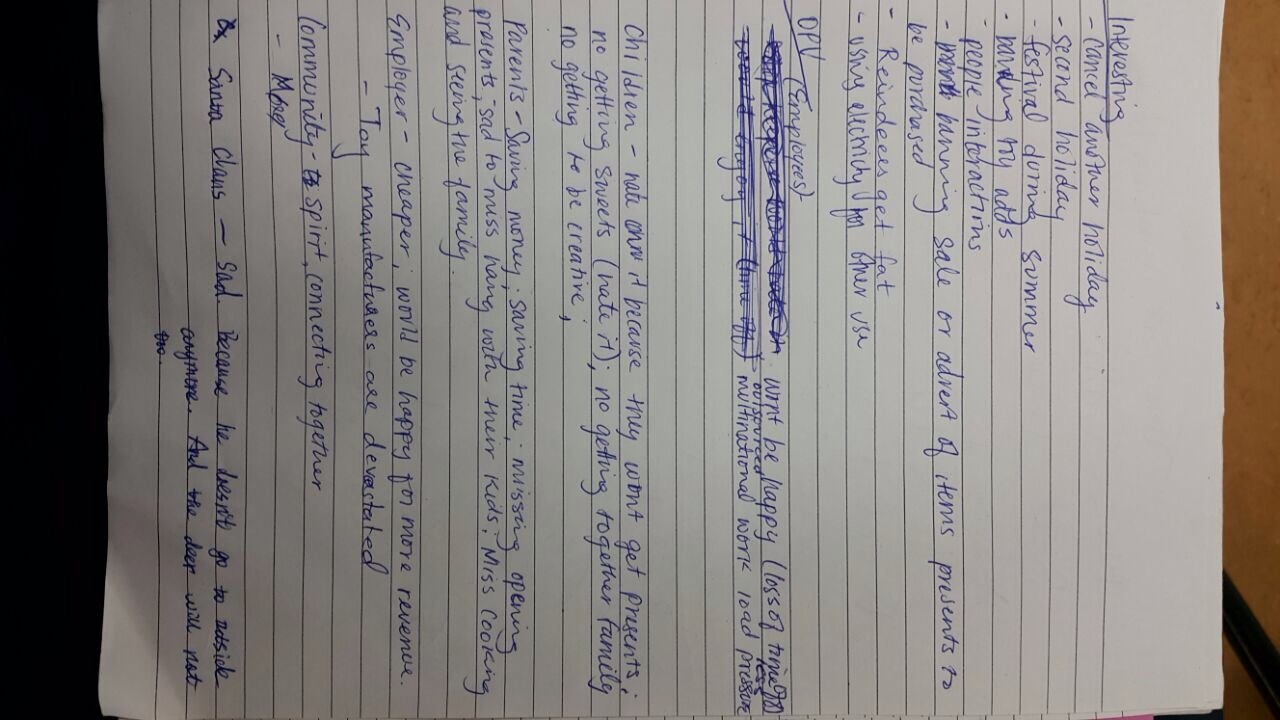 Interesting
- cancel another holiday
- second holiday
- festival during summer
- by adds
- people-interactions
- planning sale or advert of items presents to
be purchased
- Reindeers get fat
- using electricity for other use
OPV (Employees)
wont be happy (loss of time off)
outsourced less
multinational work load pressure
Children - hate it because they wont get presents;
no getting sweets (hate it); no getting together family
no getting to be creative;
Parents - Saving money; saving time; missing opening
presents; sad to miss hang with their kids; Miss Cooking
and seeing the family.
Employer - cheaper; would be happy for more revenue.
- Toy manufactures are devastated
Community - spirit, connecting together
-
Santa Claus - Sad. Because he doesn't go to outside
anymore. And the deer will not
too.